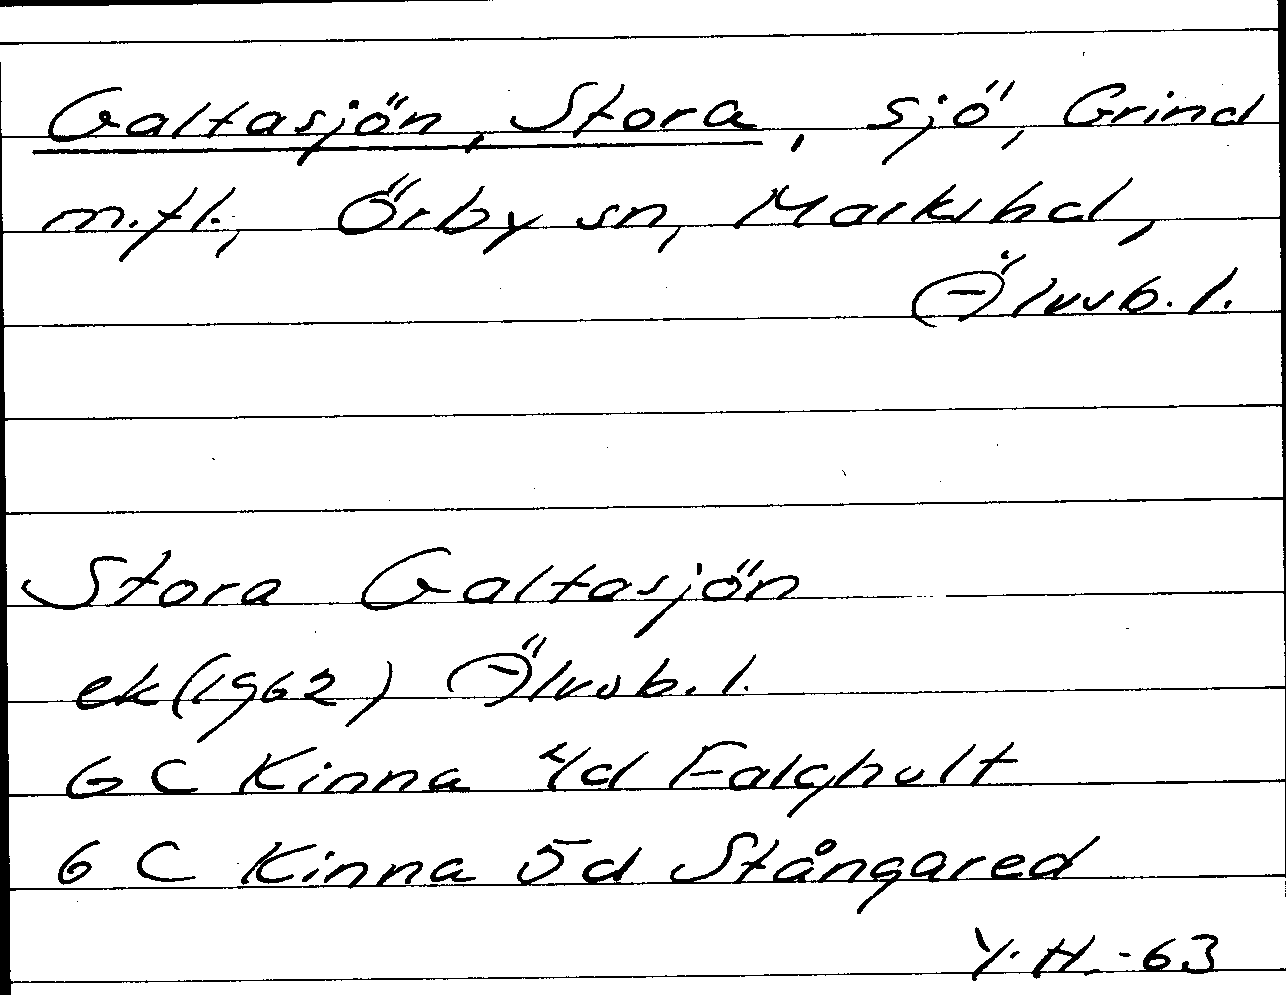 Galtasjön, Stora, sjö, Grind
m.fl., Örby sn, Marks hd,
Älvsb. l.
Stora Galtasjön
ek (1962) Älvsb. l.
6 C Kinna 4d Falghult
6 C Kinna 5d Stångared
Y. H. -63